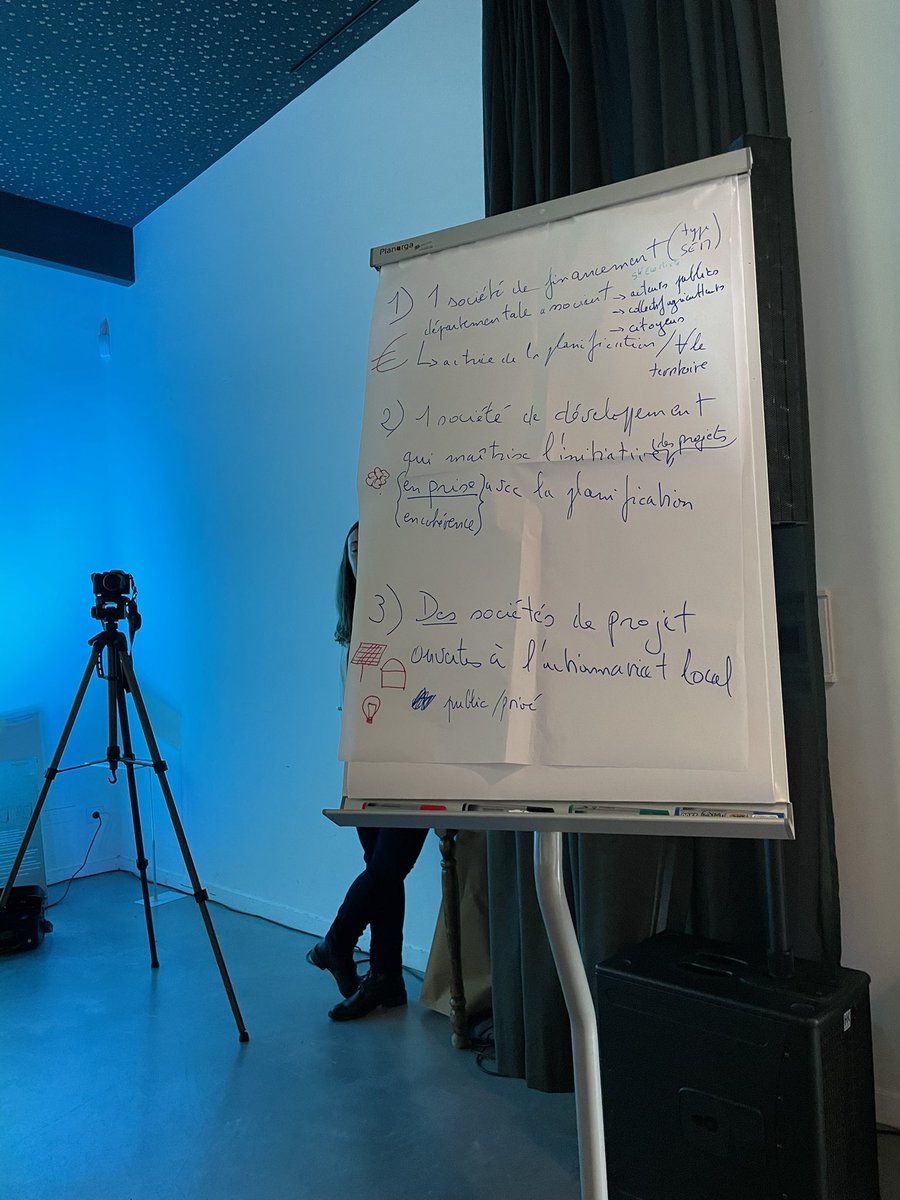 Planorga
1) 1 société de financement (type SEM)
départementale associant → acteurs publics
→ collectif agriculteurs
→ citoyens
€ ↳ actrice de la planification / ∀ le
territoire
2) 1 société de développement
qui maîtrise l'initiative des projets
{en prise} avec la planification
{en cohérence}
3) Des sociétés de projet
ouvertes à l'actionnariat local
public/privé